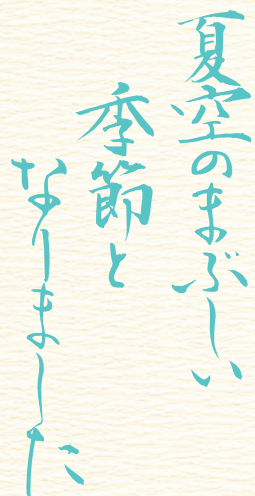 夏空のまぶしい
季節と
なりました